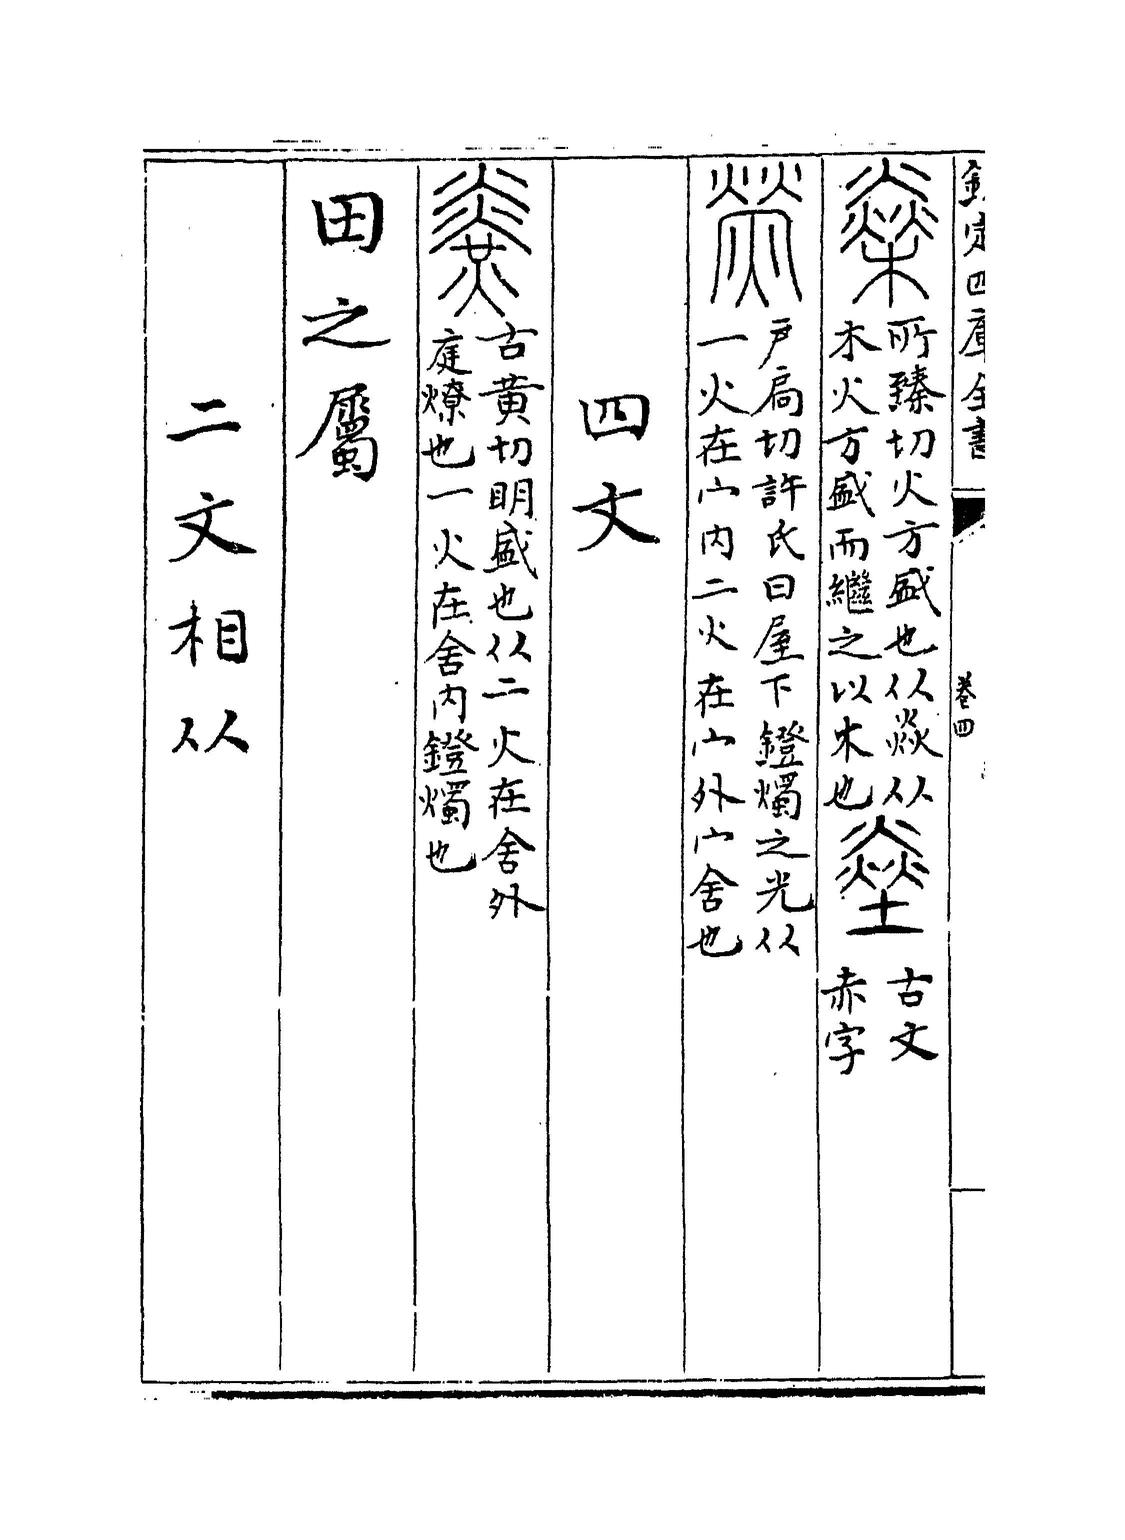 欽定四庫全書
卷四
燊
所臻切火方盛也从焱从
木火方盛而繼之以木也
古文
赤字
熒
戸扃切許氏曰屋下鐙燭之光从
一火在宀内二火在宀外宀舍也
四文
古黄切明盛也从二火在舍外
庭燎也一火在舍内鐙燭也
田之屬
二文相从